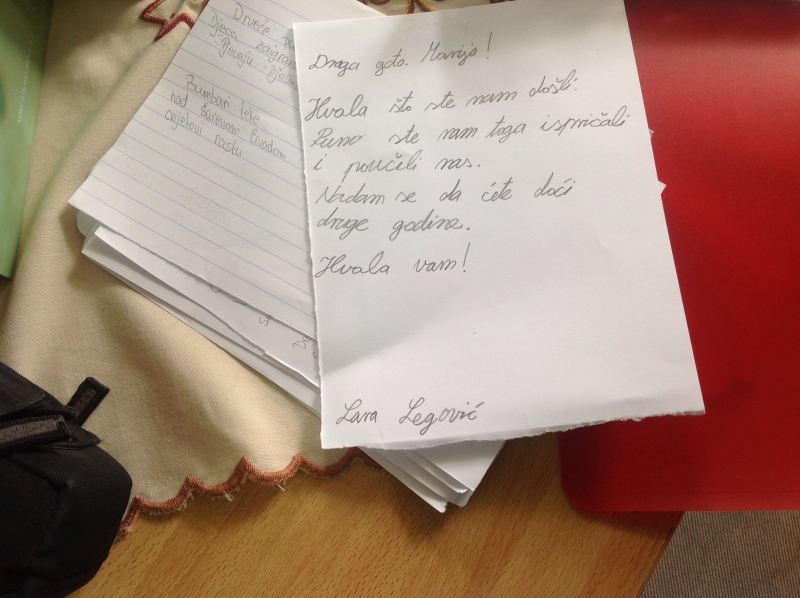 Drveće
Djeca
Pjevaju
Bumbari lete
nad šarenom livadom
cvijetovi rastu
Draga gđo. Marija!
Hvala što ste nam došli.
Puno ste nam toga ispričali
i poučili nas.
Nadam se da ćete doći
druge godine.
Hvala vam!
Lara Legović